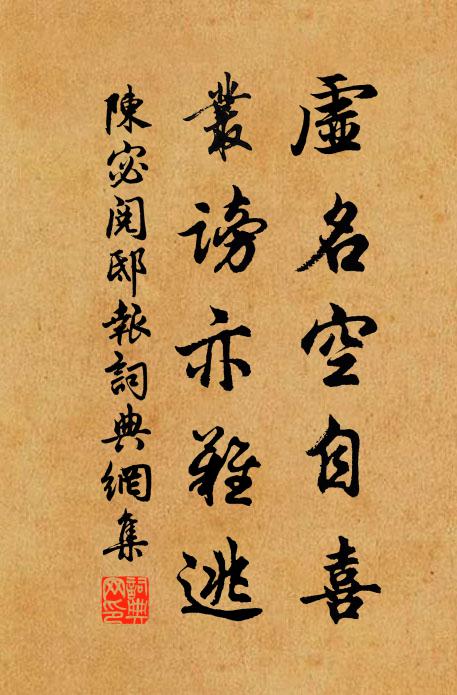 虛名空自喜
叢謗亦難逃
陳宓閱邸報詞典網集